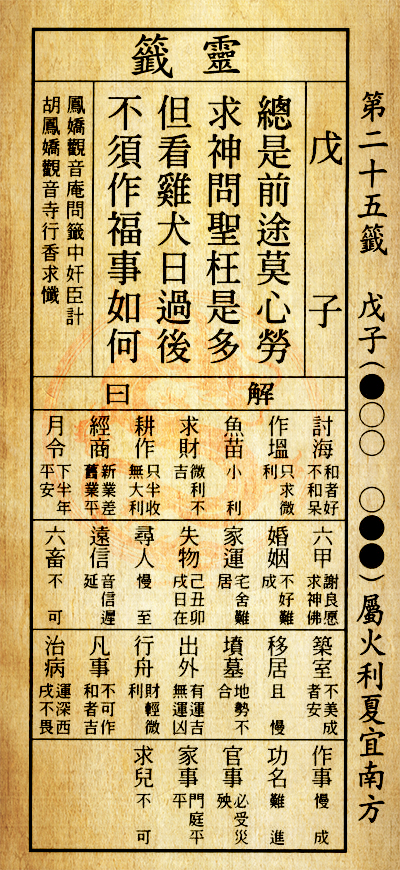 第二十五籤 戊子(●○○ ○●●)屬火利夏宜南方
靈籤
戊子
總是前途莫心勞
求神問聖枉是多
但看雞犬日過後
不須作福事如何
鳳嬌觀音庵問籤中奸臣計
胡鳳嬌觀音寺行香求懺
解曰
討海
和者好
不和呆
作塭
只求微
利
魚苗
小利
求財
微利不
吉
耕作
只半收
無大利
經商
新業差
舊業平
月令
下半年
平安
六甲
謝良愿
求神佛
婚姻
不好難
成
家運
宅舍難
居
失物
己丑卯
戌日在
尋人
慢至
遠信
音信遲
延
六畜
不可
築室
不美成
者安
移居
且慢
墳墓
地勢不
合
出外
有運吉
無運凶
行舟
財輕微
利
凡事
不可作
和者吉
治病
運深西
戌不畏
作事
慢成
功名
難進
官事
必受災
殃
家事
門庭平
平
求兒
不可